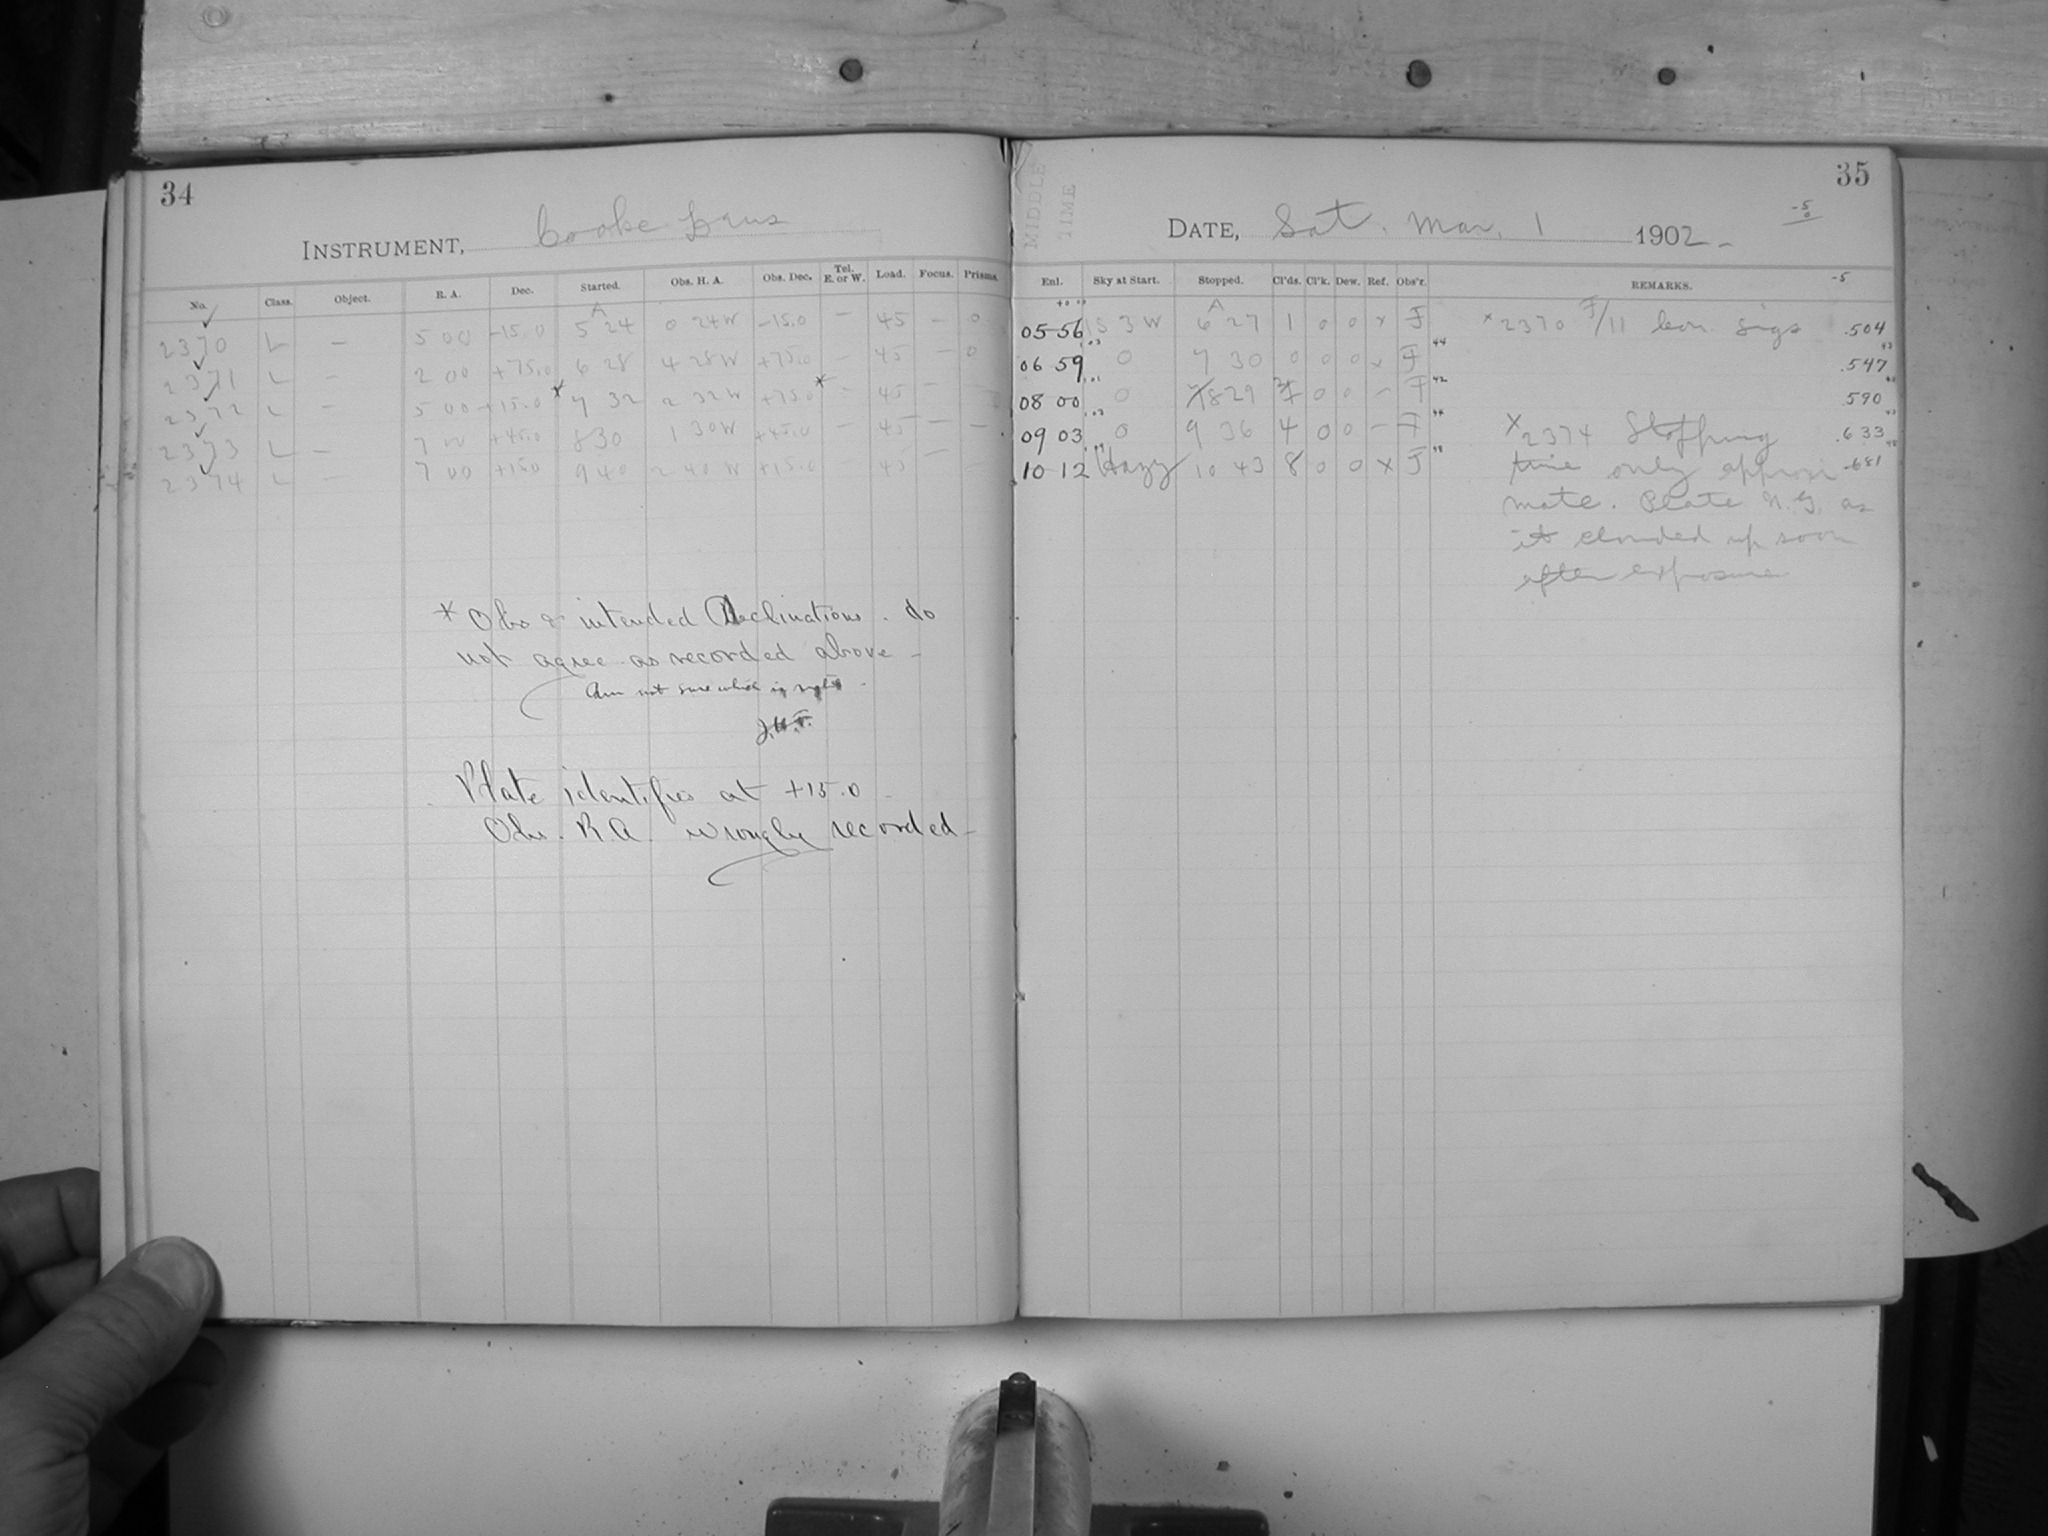 34
INSTRUMENT, Cooke Lens
No. Class. Object. R. A. Dec. Started. Obs. H. A. Obs. Dec. Tel. E. or W. Load. Focus. Prisms.
A
2370 L – 5 00 –15.0 5 24 0 24 W –15.0 – 45 – 0
2371 L – 2 00 +75.0 6 28 4 28 W +75.0 – 45 – 0
2372 L – 5 00 +15.0 * 7 32 2 32 W +75.0 * – 45 – –
2373 L – 7 00 +45.0 8 30 1 30 W +45.0 – 45 – –
2374 L – 7 00 +15.0 9 40 2 40 W +15.0 45 –
* Obs & intended Declinations. do
not agree as recorded above –
Am not sure which is right.
Plate identifies at +15.0
Obs. R.A. wrongly recorded –
MIDDLE
TIME
35
DATE, Sat. Mar. 1 1902 –
Enl. Sky at Start. Stopped. Cl'ds. Cl'k. Dew. Ref. Obs'r. REMARKS. –5
A
05 56 S 3 W 6 27 1 0 0 x F x 2370 F/11 .504
06 59 0 7 30 0 0 0 x F .547
08 00 0 8 29 0 0 – F .590
09 03 0 9 36 4 0 0 – F x 2374 Stopping .633
10 12 Hazy 10 43 8 0 0 x F time only approxi .681
mate. Plate N.G. as
it clouded up soon
after exposure